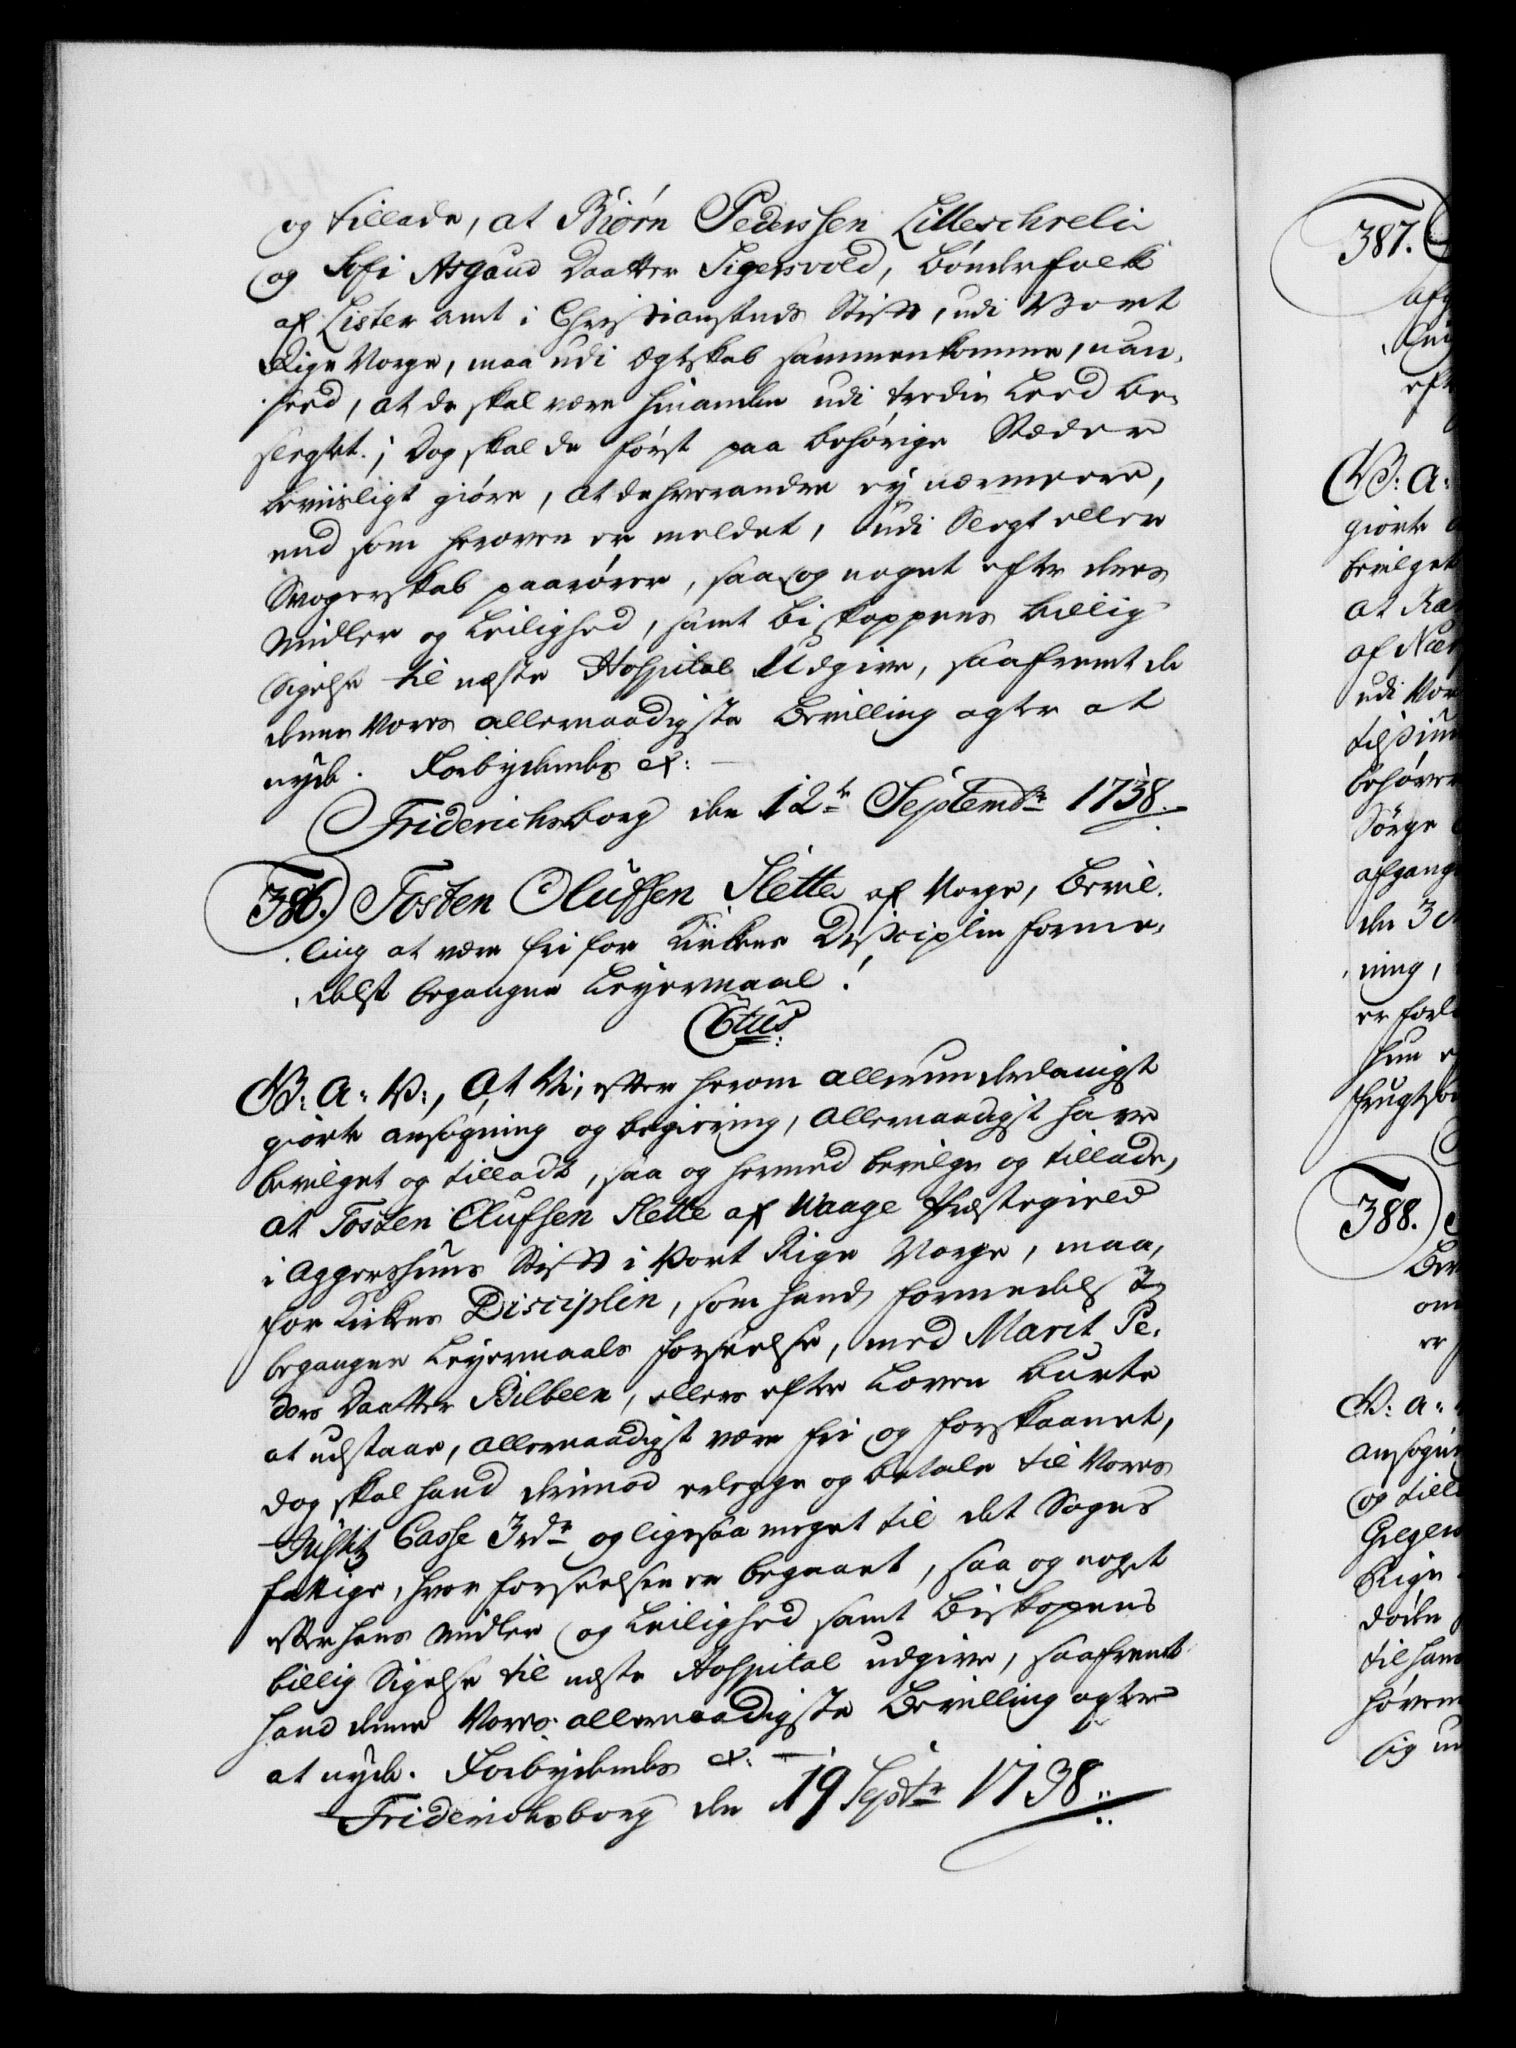 og tillade, at Biørn Pederssen Lilleschreli
og Sofi Asgaud Daatter Sigersvold, bønderfolk
af Lister amt i Christiansands Stift, udi Vort
Rige Norge, maa udi Ægteskab sammenkomme, uan-
seed, at de skal være hinanden udi tredie Leed be-
slegtet; Dog skal de først paa behørige Stæder
beviisligt giøre, at de hverandre ey nærmere,
end som herowen er meldet, udi Slegt eller
Svogerskab paarører, saa og noget efter deres
Midler og Leilighed, samt Biskoppens billig
Sigelse til næste Hospital Udgive, saafremt de
denne Vores allernaadigste Bevilling agter at
nyde. Forbydendes &:
Friderichsborg den 12te Septembr 1738.
386. Tosten Olufsen Slette af Norge, Bevil-
ling at være fri for Kirkens Disciplin forme-
delst begangne Leyermaal!
Ctus
G: A: V:, At Vi, efter herom allerunderdanigst
giorte ansøgning og begiering, allernaadigst have
bevilget og tilladt, saa og hermed bevilge og tillade,
at Tosten Olufsen Slette af Waage Præstegield
i Aggershuus Stift i Vort Rige Norge, maa,
for Kirkens Disciplin, som hand formedelst
begangne Leyermaals forseelse, med Marit Pe-
ders Daatter Bilbeen, ellers efter Loven burte
at udstaae, allernaadigst være fri og forskaanet,
dog skal hand derimod erlegge og betale til Vores
Justitz Casse 3 rdr og ligesaa meget til det Sogns
fattige, hvor forseelsen er begaaet, saa og noget
efter hans Midler og Leilighed samt Biskopens
billig Sigelse til næste Hospital udgive, saafremt
hand denne Vores allernaadigste Bevilling agter
at nyde. Forbydendes &:
Friderichsborg den 19 Septr 1738
387.
G: A:
giorte
bevilget
at
af
udi Vor
behøver
Sørge
afgang
den 3
ning,
er forl
hun
frugtso
388.
Be
om
er
G: A:
ansøgn
og till
Greger
Rige
døde
til han
høven
sig u